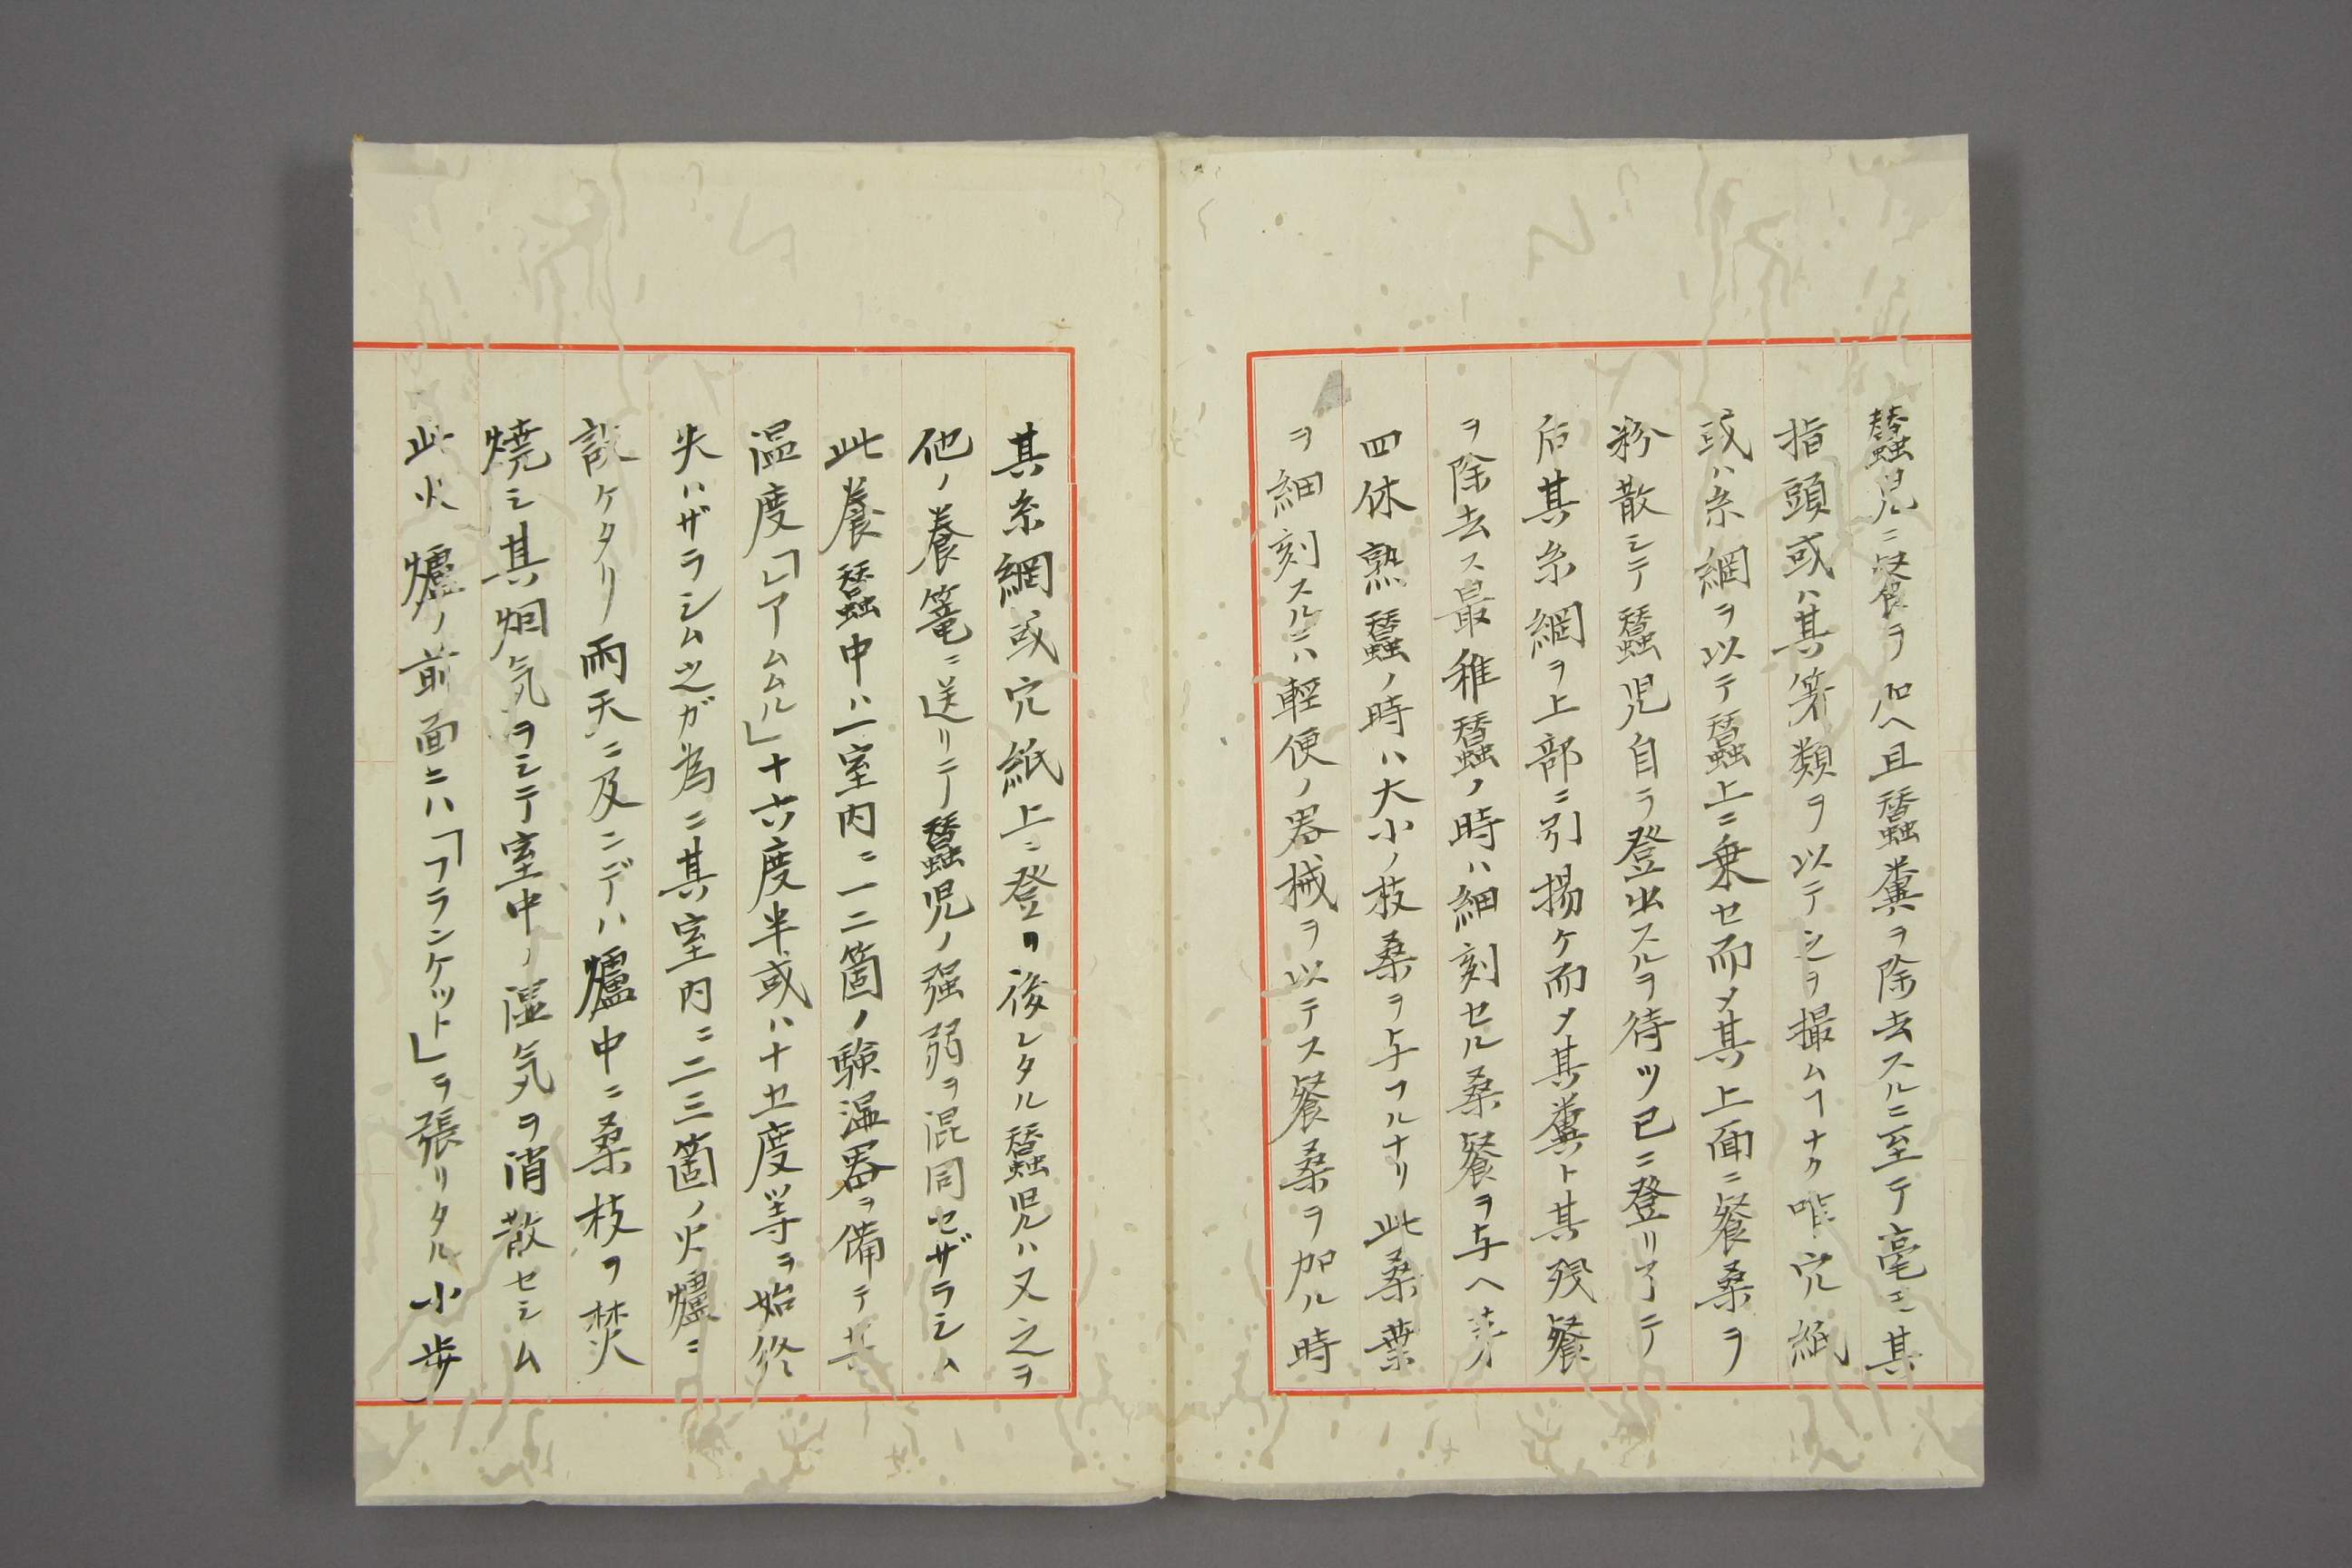 蠶児ニ餐ヲ加ヘ且蠶糞ヲ除去スルニ至テ毫モ其
指頭或ハ其箒類ヲ以テ之ヲ撮ムヿナク唯穴紙
或ハ糸網ヲ以テ蠶上ニ乗セ而メ其上面ニ餐桑ヲ
粉散シテ蠶児自ラ登出スルヲ待ツ已ニ登リ了テ
后其糸網ヲ上部ニ引揚ケ而メ其糞ト其残餐
ヲ除去ス最稚蠶ノ時ハ細刻セル桑餐ヲ与ヘ第
四休熟蠶ノ時ハ大小ノ枝桑ヲ与フルナリ此桑葉
ヲ細刻スルニハ軽便ノ器械ヲ以テス餐桑ヲ加ル時
其糸網或穴紙上ニ登ヲ後レタル蠶児ハ又之ヲ
他ノ養篭ニ送リテ蠶児ノ强弱ヲ混同セザラシム
此養蠶中ハ一室内ニ一二箇ノ験温器ヲ備テ其
温度「レアムムル」十六度半或ハ十五度等ヲ始終
失ハザラシム之ガ為ニ其室内ニ二三箇ノ火爐ニ
設ケタリ雨天ニ及ンデハ爐中ニ桑枝ヲ焚
焼シ其烟気ヲシテ室中ノ湿気ヲ消散セシム
此火爐ノ前面ニハ「フランケット」ヲ張リタル小歩